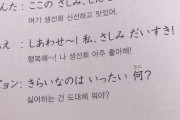 んた: ここの さしみ、しん
여기 생선회 신선하고 맛있어.
え: しあわせ〜! 私、さしみ だいすき!
행복해~! 나 생선회 아주 좋아해!
ョン: きらいなのは いったい 何?
なに
싫어하는 건 도대체 뭐야?